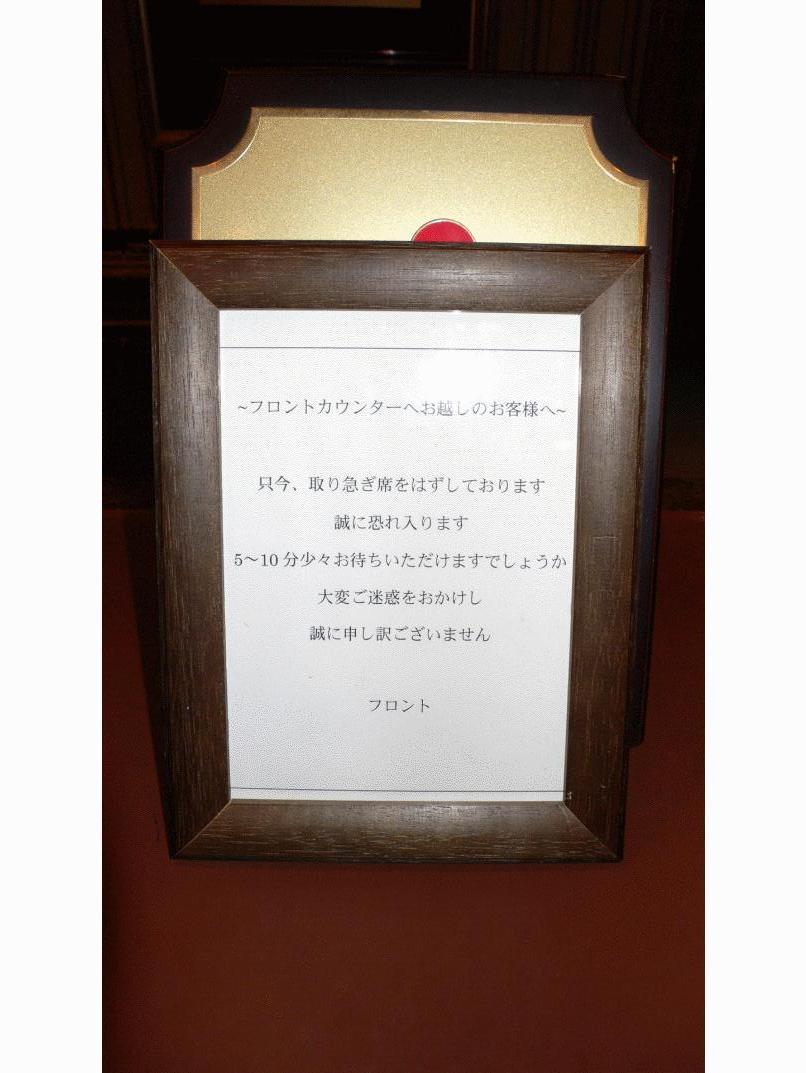 ~フロントカウンターへお越しのお客様へ~
只今、取り急ぎ席をはずしております
誠に恐れ入ります
5～10分少々お待ちいただけますでしょうか
大変ご迷惑をおかけし
誠に申し訳ございません
フロント